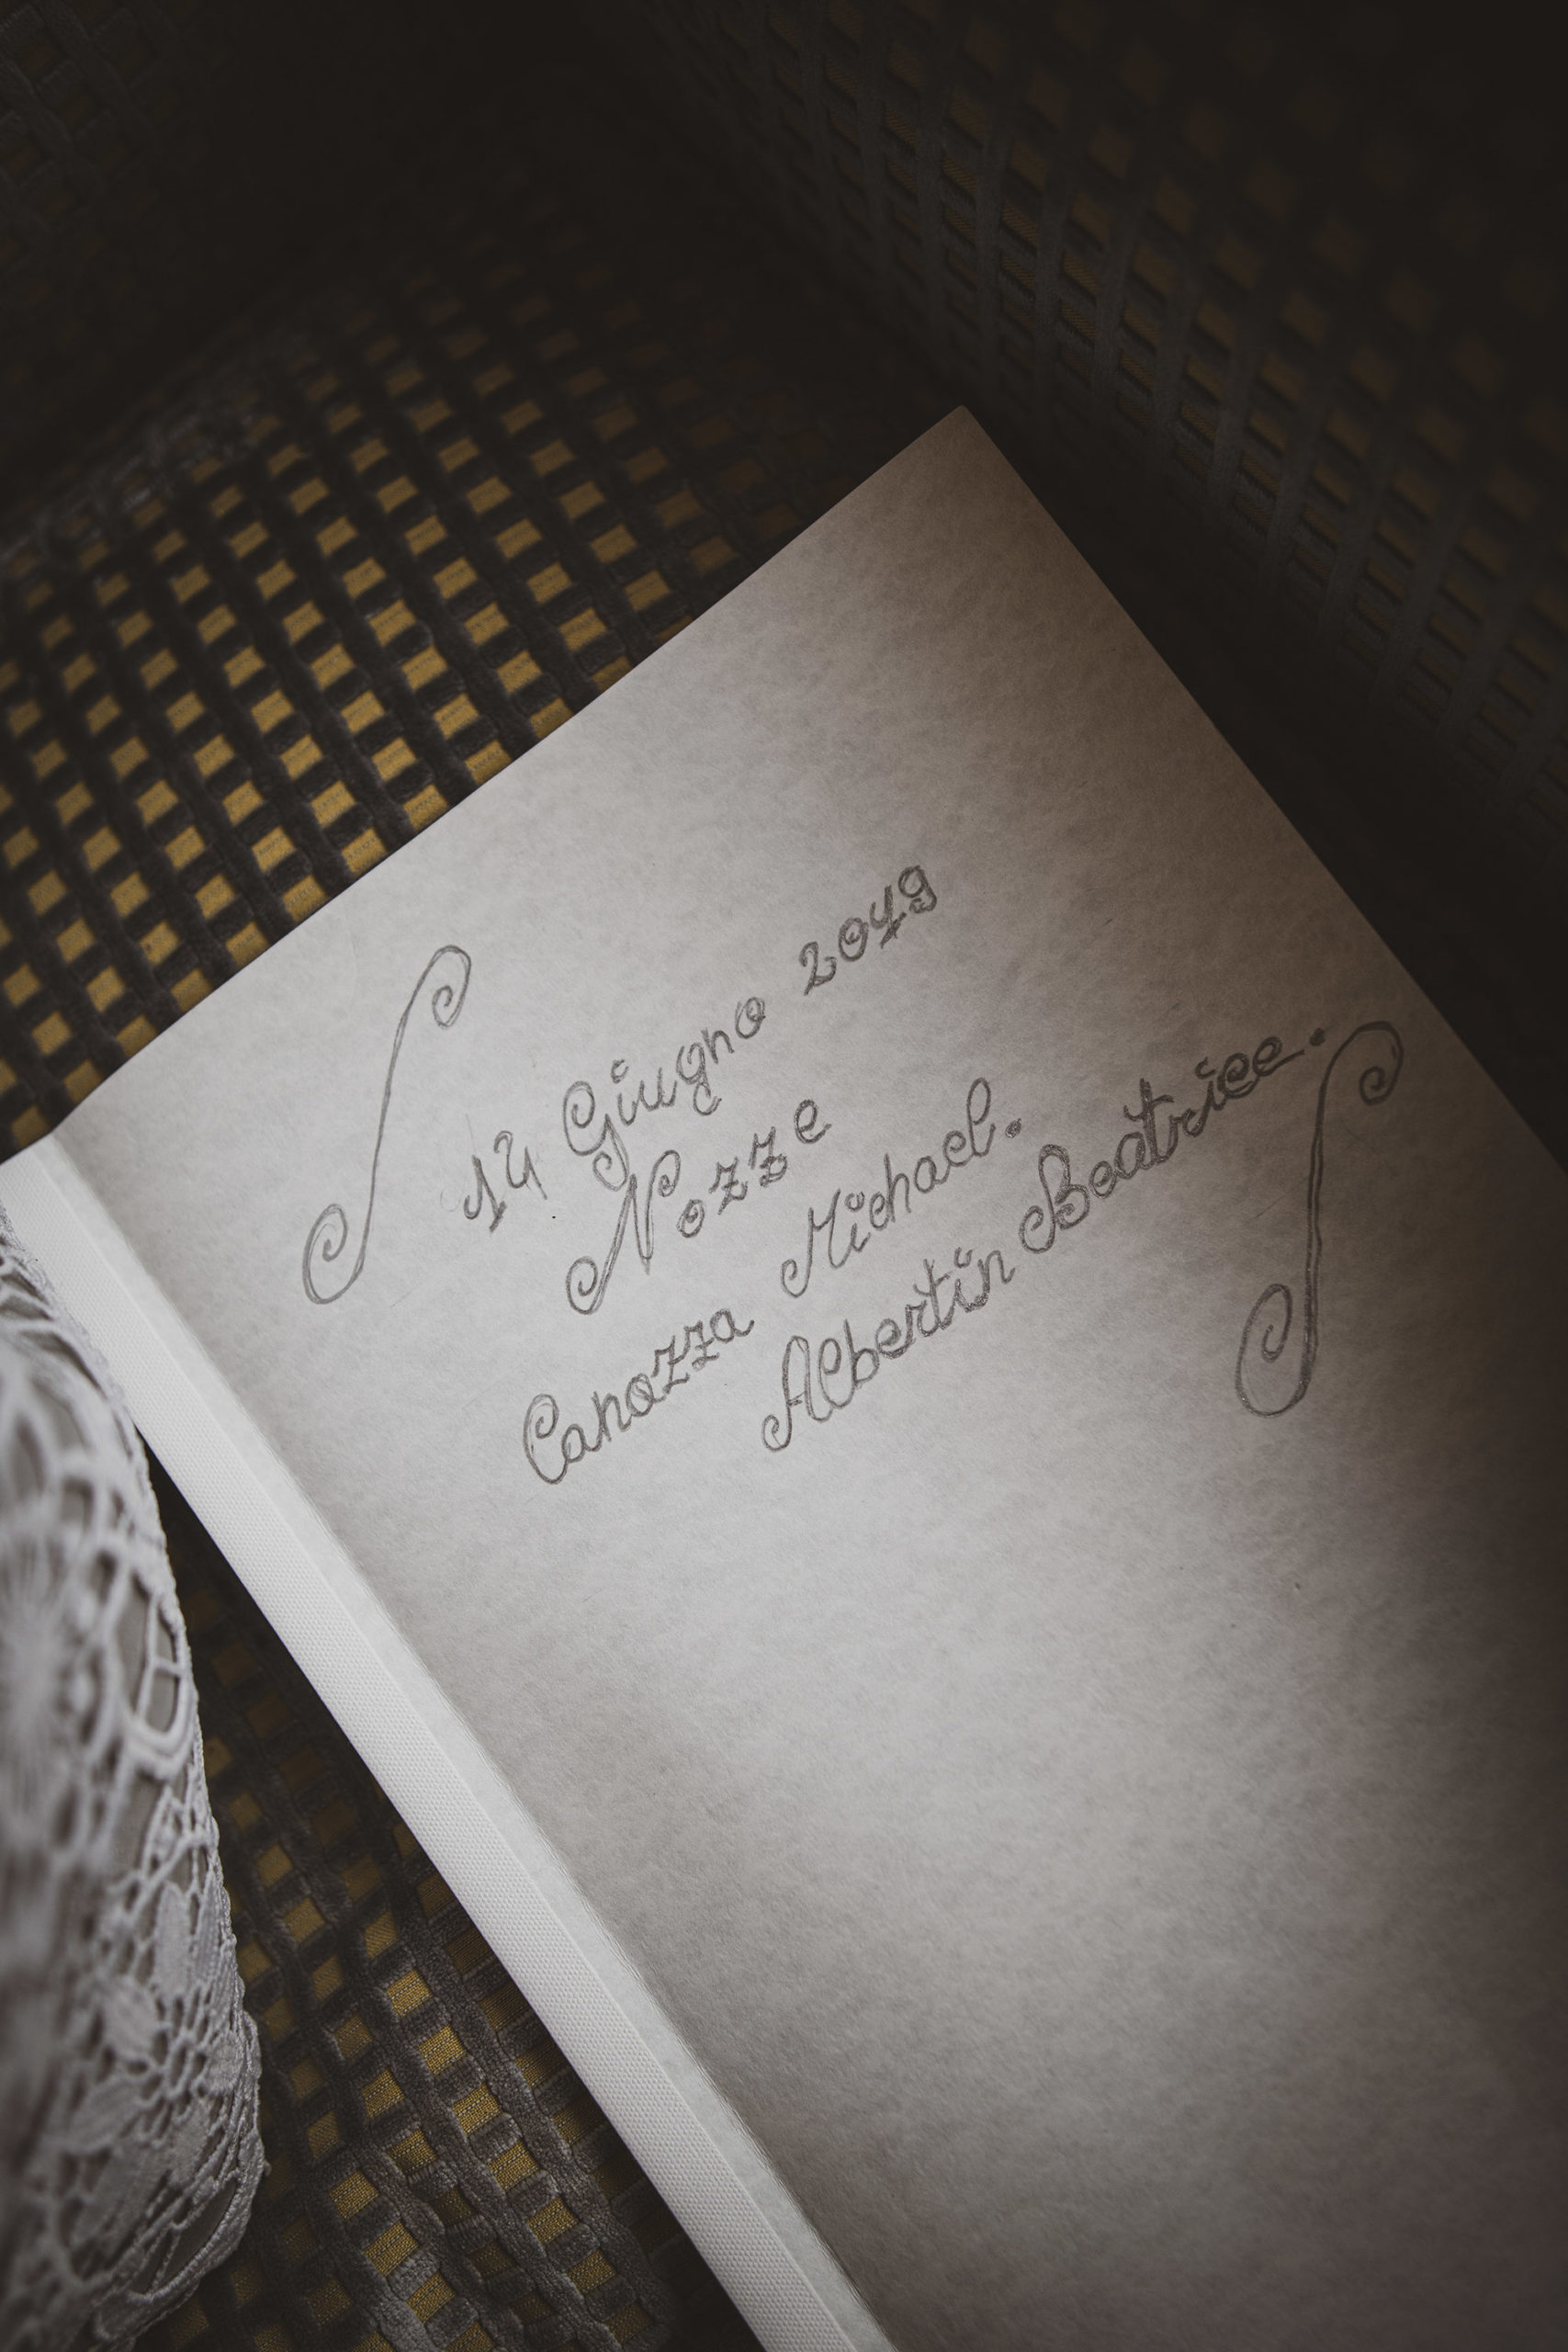 14 Giugno 2019
Nozze
Canozza Michael.
Albertin Beatrice.